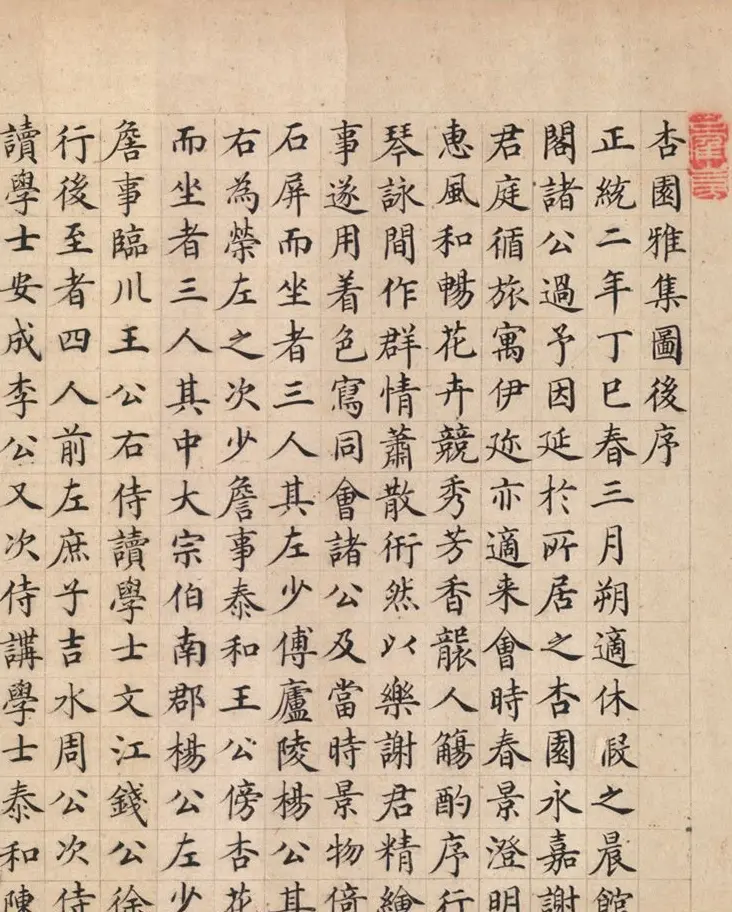 杏園雅集圖後序
正統二年丁巳春三月朔適休假之晨館
閣諸公過予因延於所居之杏園永嘉謝
君庭循旅寓伊迩亦適来會時春景澄明
惠風和暢花卉競秀芳香襲人觴酌序行
琴詠間作群情蕭散衎然以樂謝君精繪
事遂用着色寫同會諸公及當時景物倚
石屏而坐者三人其左少傅廬陵楊公其
右為榮左之次少詹事泰和王公傍杏花
而坐者三人其中大宗伯南郡楊公左少
詹事臨川王公右侍讀學士文江錢公徐
行後至者四人前左庶子吉水周公次侍
讀學士安成李公又次侍講學士泰和陳